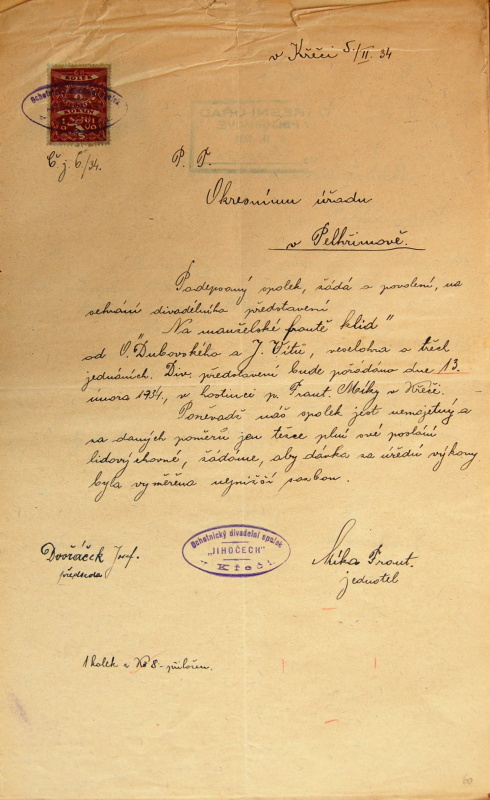 v Křeči 5./II. 34
KOLEK
Ochotnický divadelní spolek
KORUN
Č. j. 6/34.
P. T.
Okresnímu úřadu
v Pelhřimově.
Podepsaný spolek, žádá o povolení, na
sehrání divadelního představení
"Na manželské frontě klid"
od O. Dubovského a J. Vítů, veselohra o třech
jednáních. Div. představení bude pořádáno dne 13.
února 1934, v hostinci p. Frant. Míky v Křeči.
Poněvadž náš spolek jest nemajetný a
za daných poměrů jen těžce plní své poslání
lidovýchovné, žádáme, aby dávka za úřední výkony
byla vyměřena nejnižší sazbou.
Dvořáček Josef.
předseda
Ochotnický divadelní spolek
"JIHOČECH"
v Křeči
Míka Frant.
jednatel
1 kolek a Kč 8- přiložen.
60